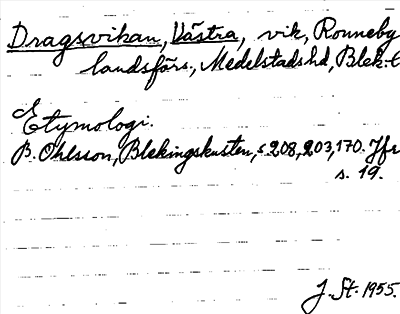 Dragsvikan, Västra, vik, Ronneby
landsförs., Medelstads hd, Blek. l
Etymologi.
B. Ohlsson, Blekingskusten, s. 208, 203, 170. Jfr
s. 19.
J. St. 1955.